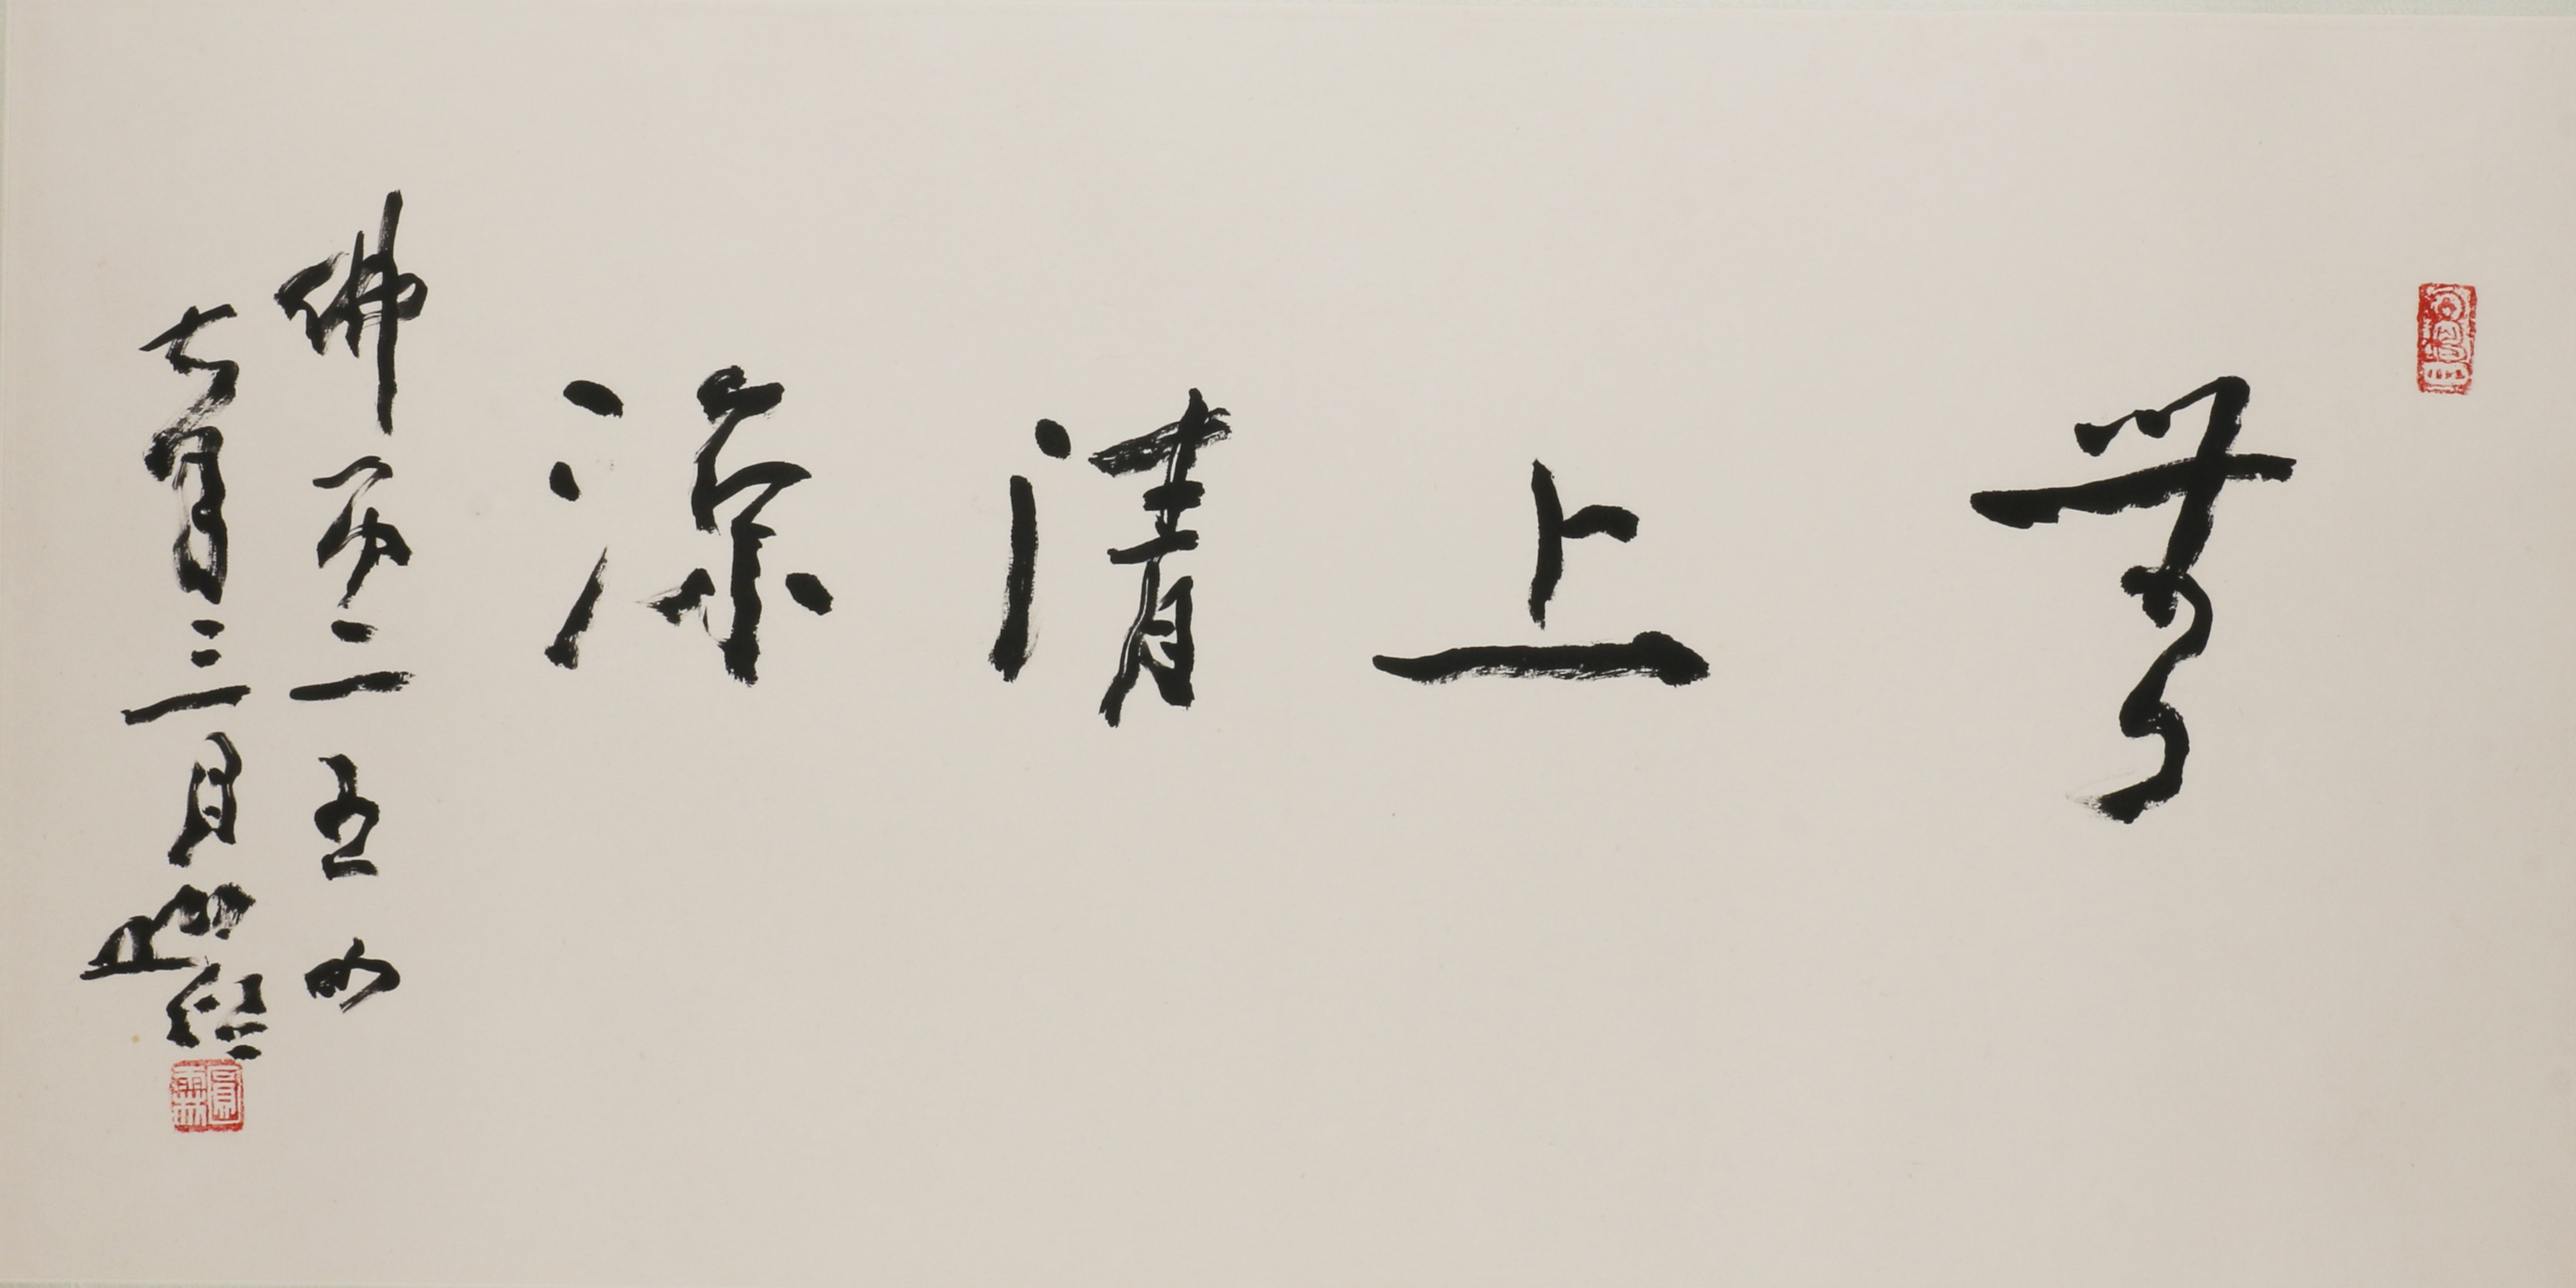 無上清涼
佛曆二五四
七年三月
圓霖